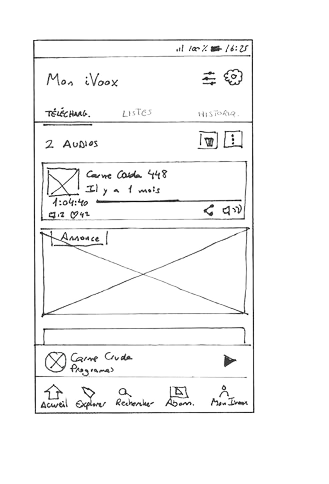 100% 16:25
Mon iVoox
TÉLÉCHARG. LISTES HISTORIQ.
2 AUDIOS
Carne Cruda 448
Il y a 1 mois
1:04:40
12 42
Annonce
Carne Cruda
Programas
Accueil Explorer Rechercher Abonn. Mon Ivoox